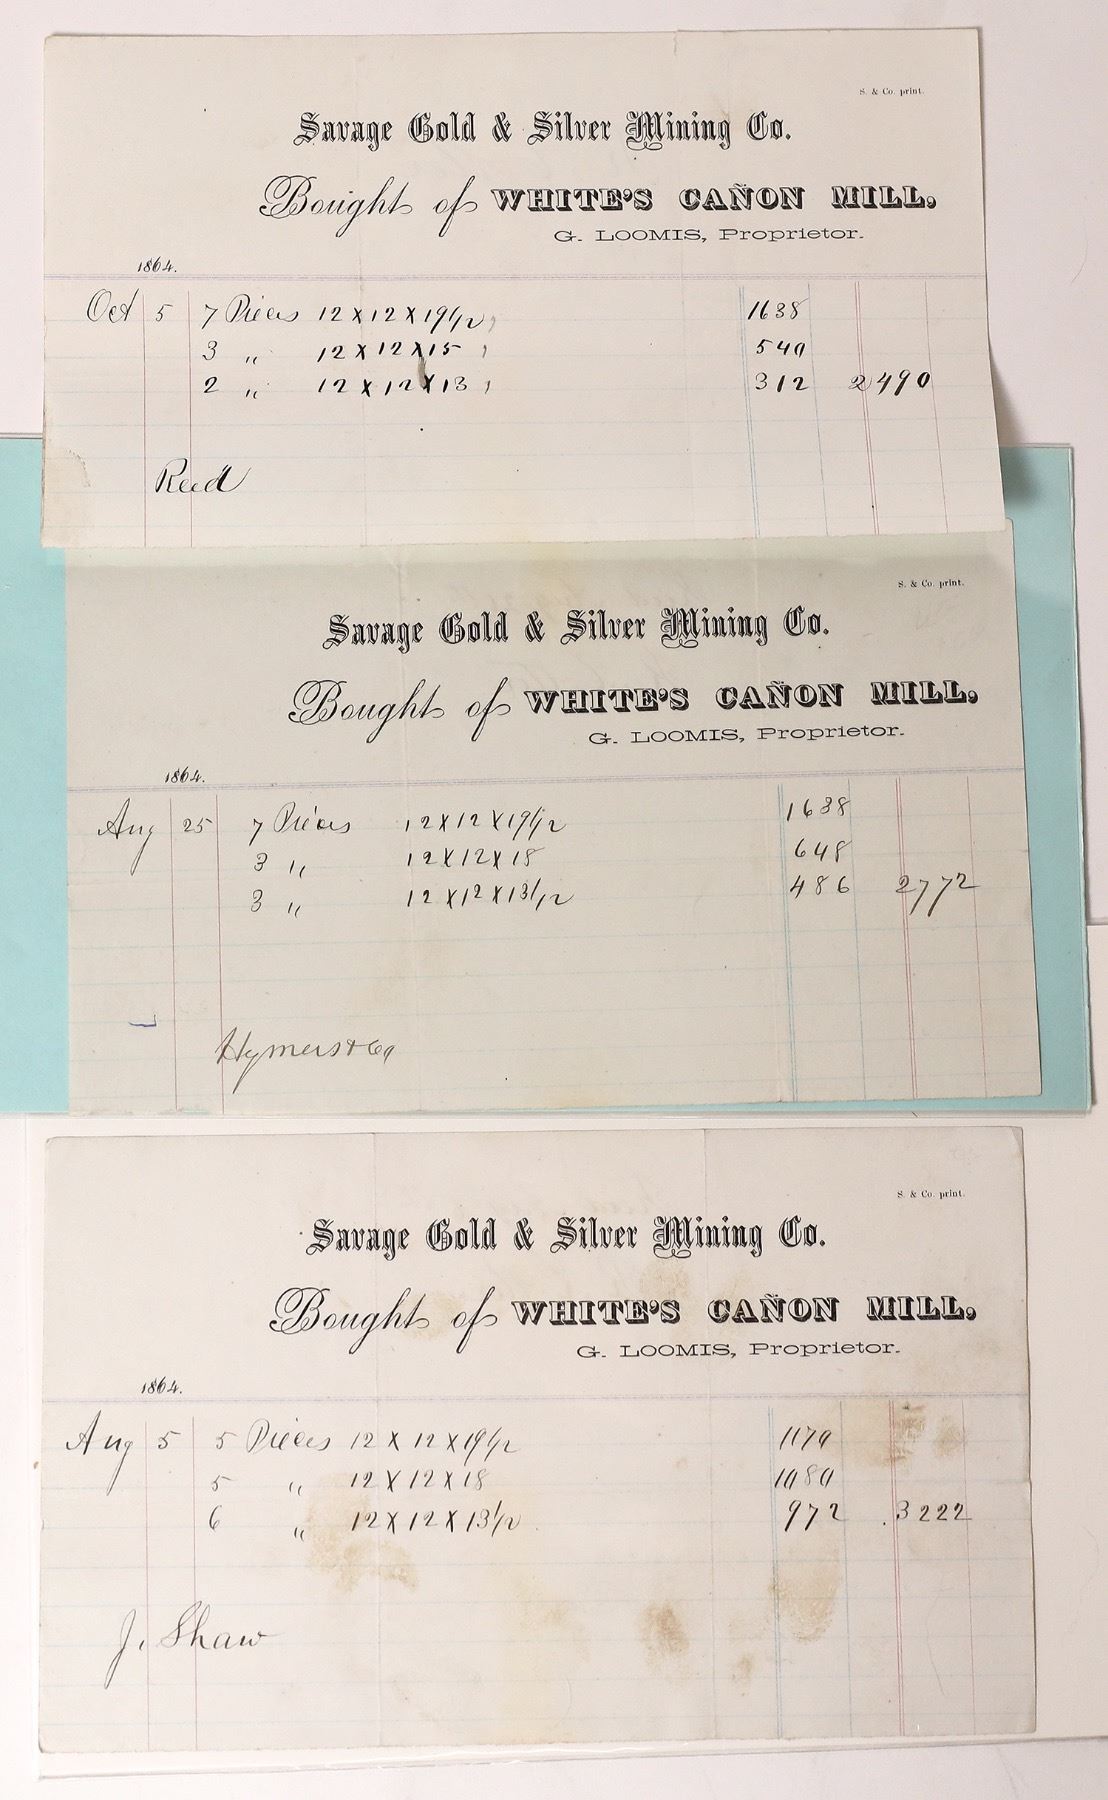 S. & Co. print.
Savage Gold & Silver Mining Co.
Bought of WHITE'S CAÑON MILL,
G. LOOMIS, Proprietor.
1864.
Oct 5 7 Pieces 12 x 12 x 19 1/2, 1638
3 " 12 x 12 x 15, 540
2 " 12 x 12 x 13, 312 2490
Reed
S. & Co. print.
Savage Gold & Silver Mining Co.
Bought of WHITE'S CAÑON MILL,
G. LOOMIS, Proprietor.
1864.
Aug 25 7 Pieces 12 x 12 x 19 1/2 1638
3 " 12 x 12 x 18 648
3 " 12 x 12 x 13 1/2 486 2772
Hymers & Co
S. & Co. print.
Savage Gold & Silver Mining Co.
Bought of WHITE'S CAÑON MILL,
G. LOOMIS, Proprietor.
1864.
Aug 5 5 Pieces 12 x 12 x 19 1/2 1170
5 " 12 x 12 x 18 1080
6 " 12 x 12 x 13 1/2 972 3222
J. Shaw